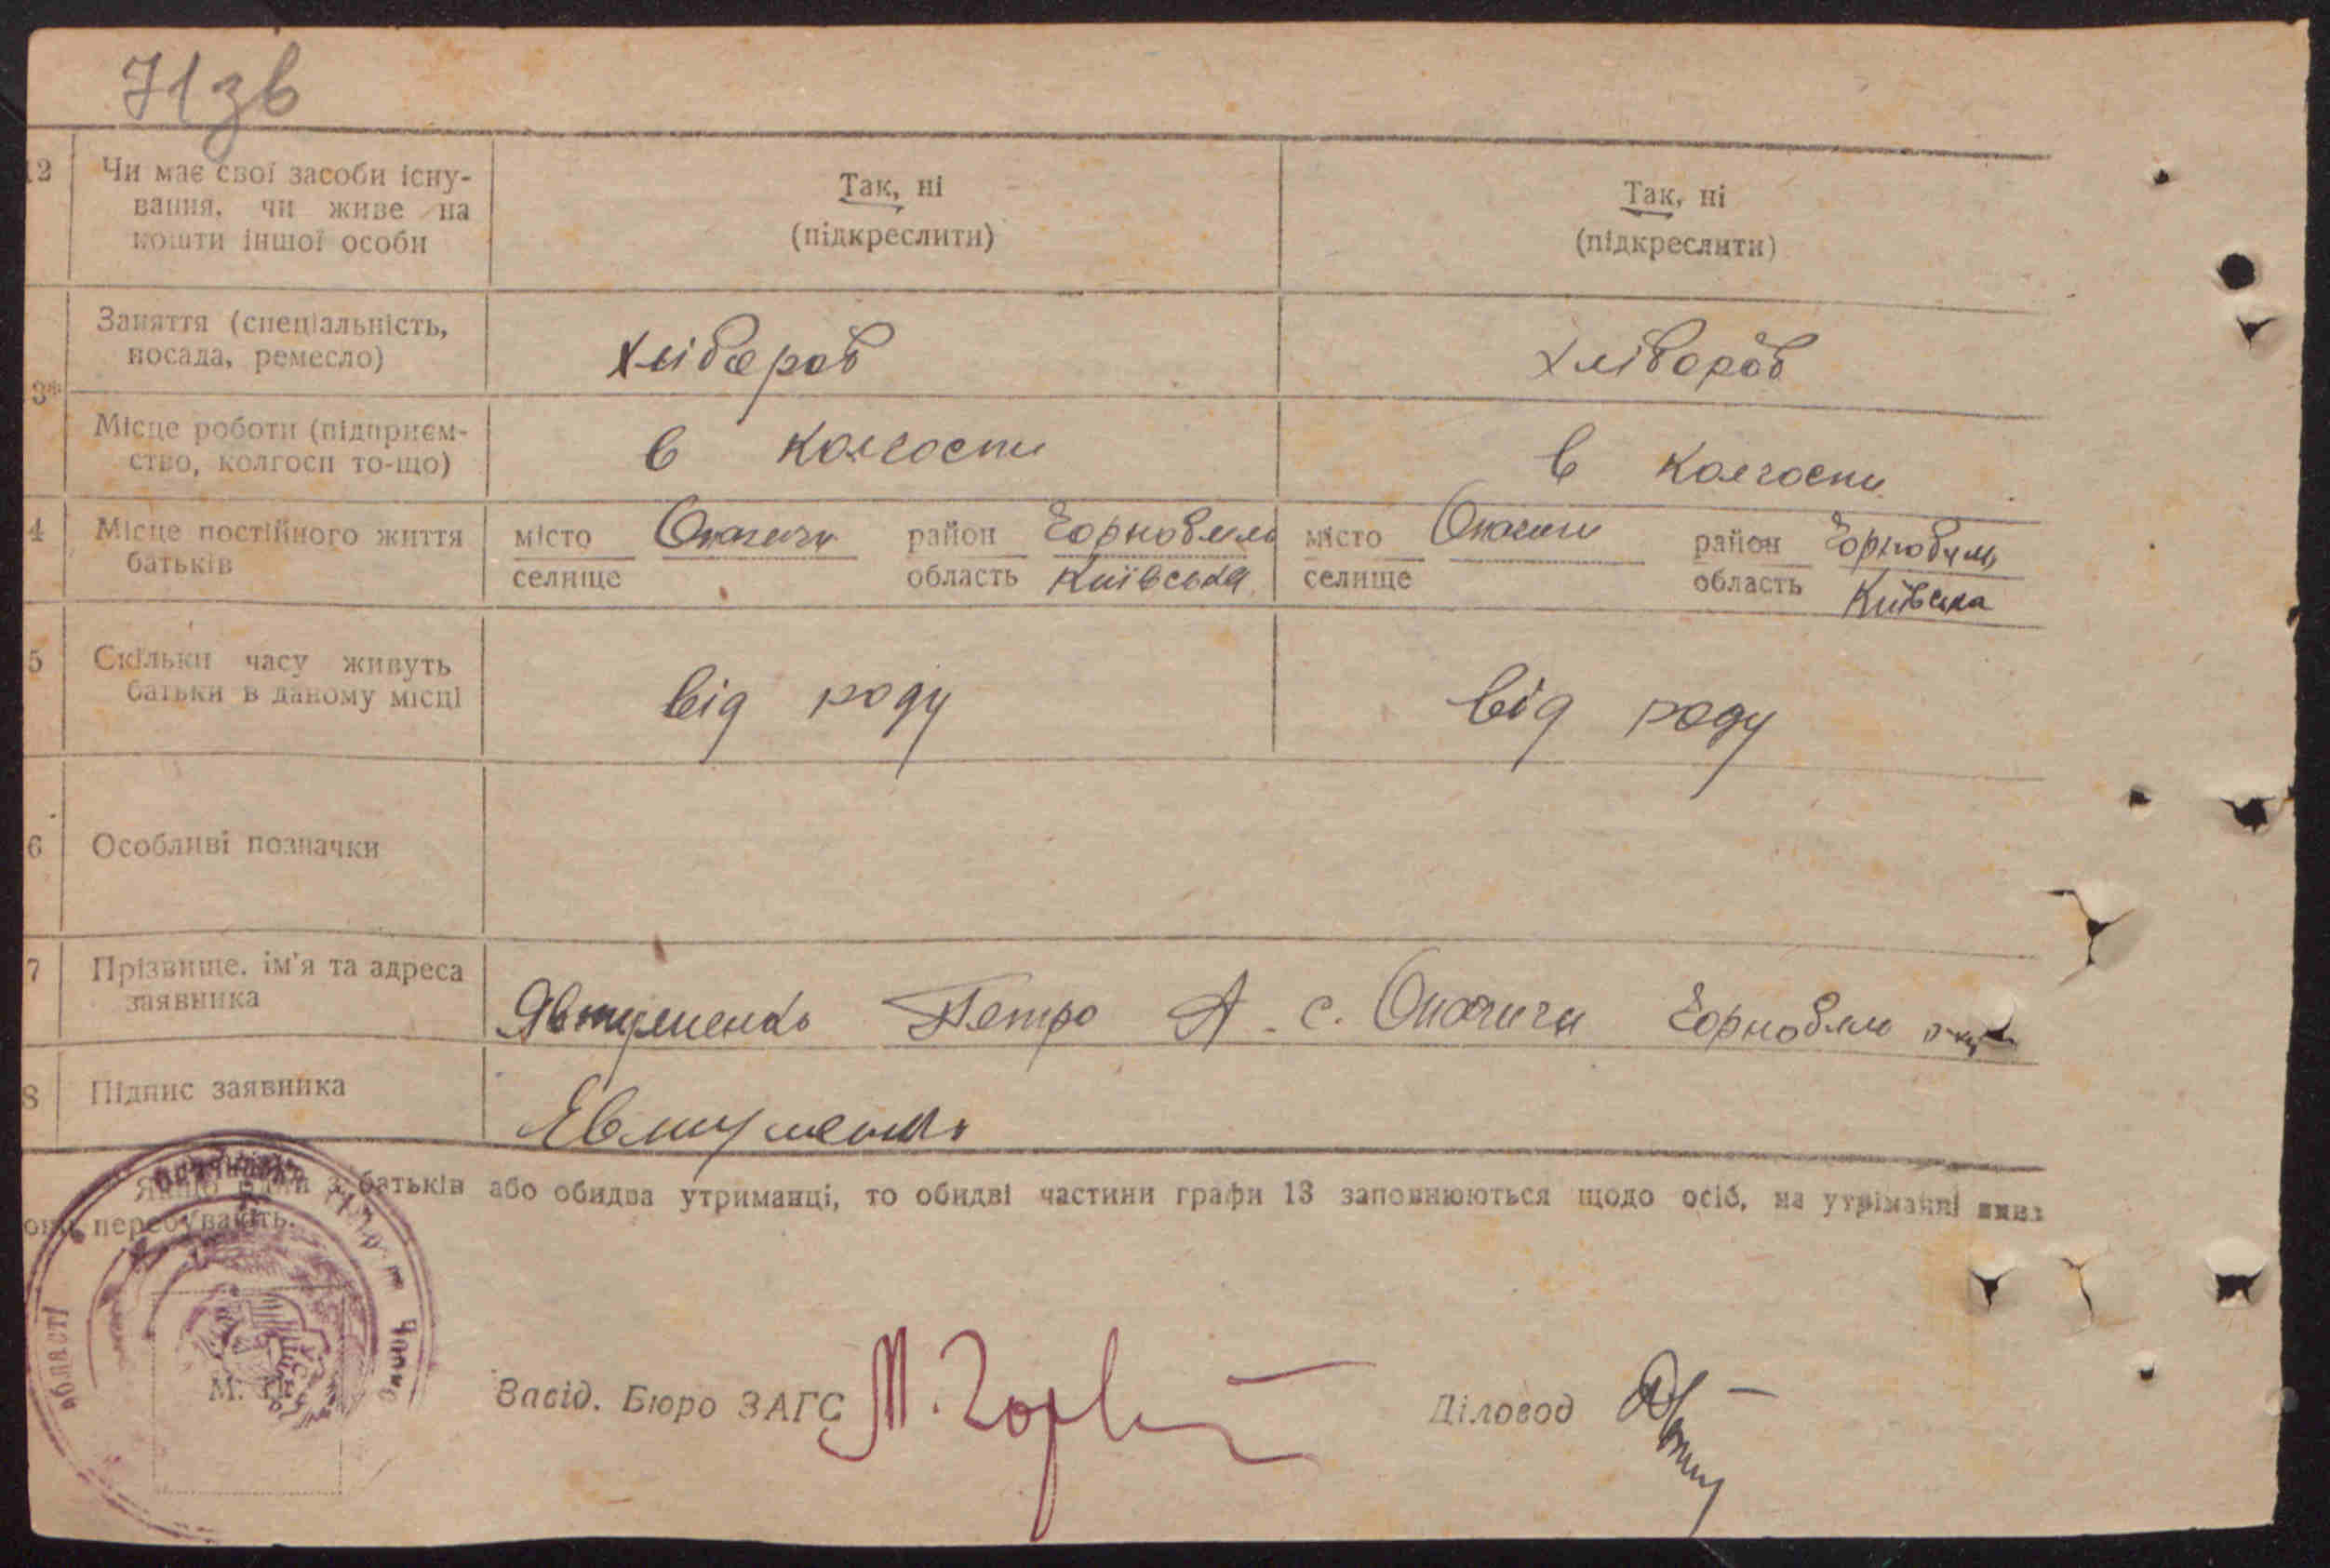 71зв
12 Чи має свої засоби існу-
вання, чи живе на
кошти іншої особи
Так, ні
(підкреслити)
Так, ні
(підкреслити)
Заняття (спеціальність,
посада, ремесло)
хлібороб
хлібороб
3*
Місце роботи (підприєм-
ство, колгосп то-що)
в колгоспи
в колгоспи
4 Місце постійного життя
батьків
місто Опачичи район Чорнобиль
селище область Київська
місто Опачичи район Чорнобиль
селище область Київська
5 Скільки часу живуть
батьки в даному місці
від роду
від роду
6 Особливі позначки
7 Прізвище, ім'я та адреса
заявника
Явтушенко Петро А. с. Опачичи Чорнобил
8 Підпис заявника
Евтушенко
Якщо один з батьків або обидва утриманці, то обидві частини графи 13 заповнюються щодо осіб, на утриманні яких
вони перебувають.
області
М. П.
Завід. Бюро ЗАГС
Діловод